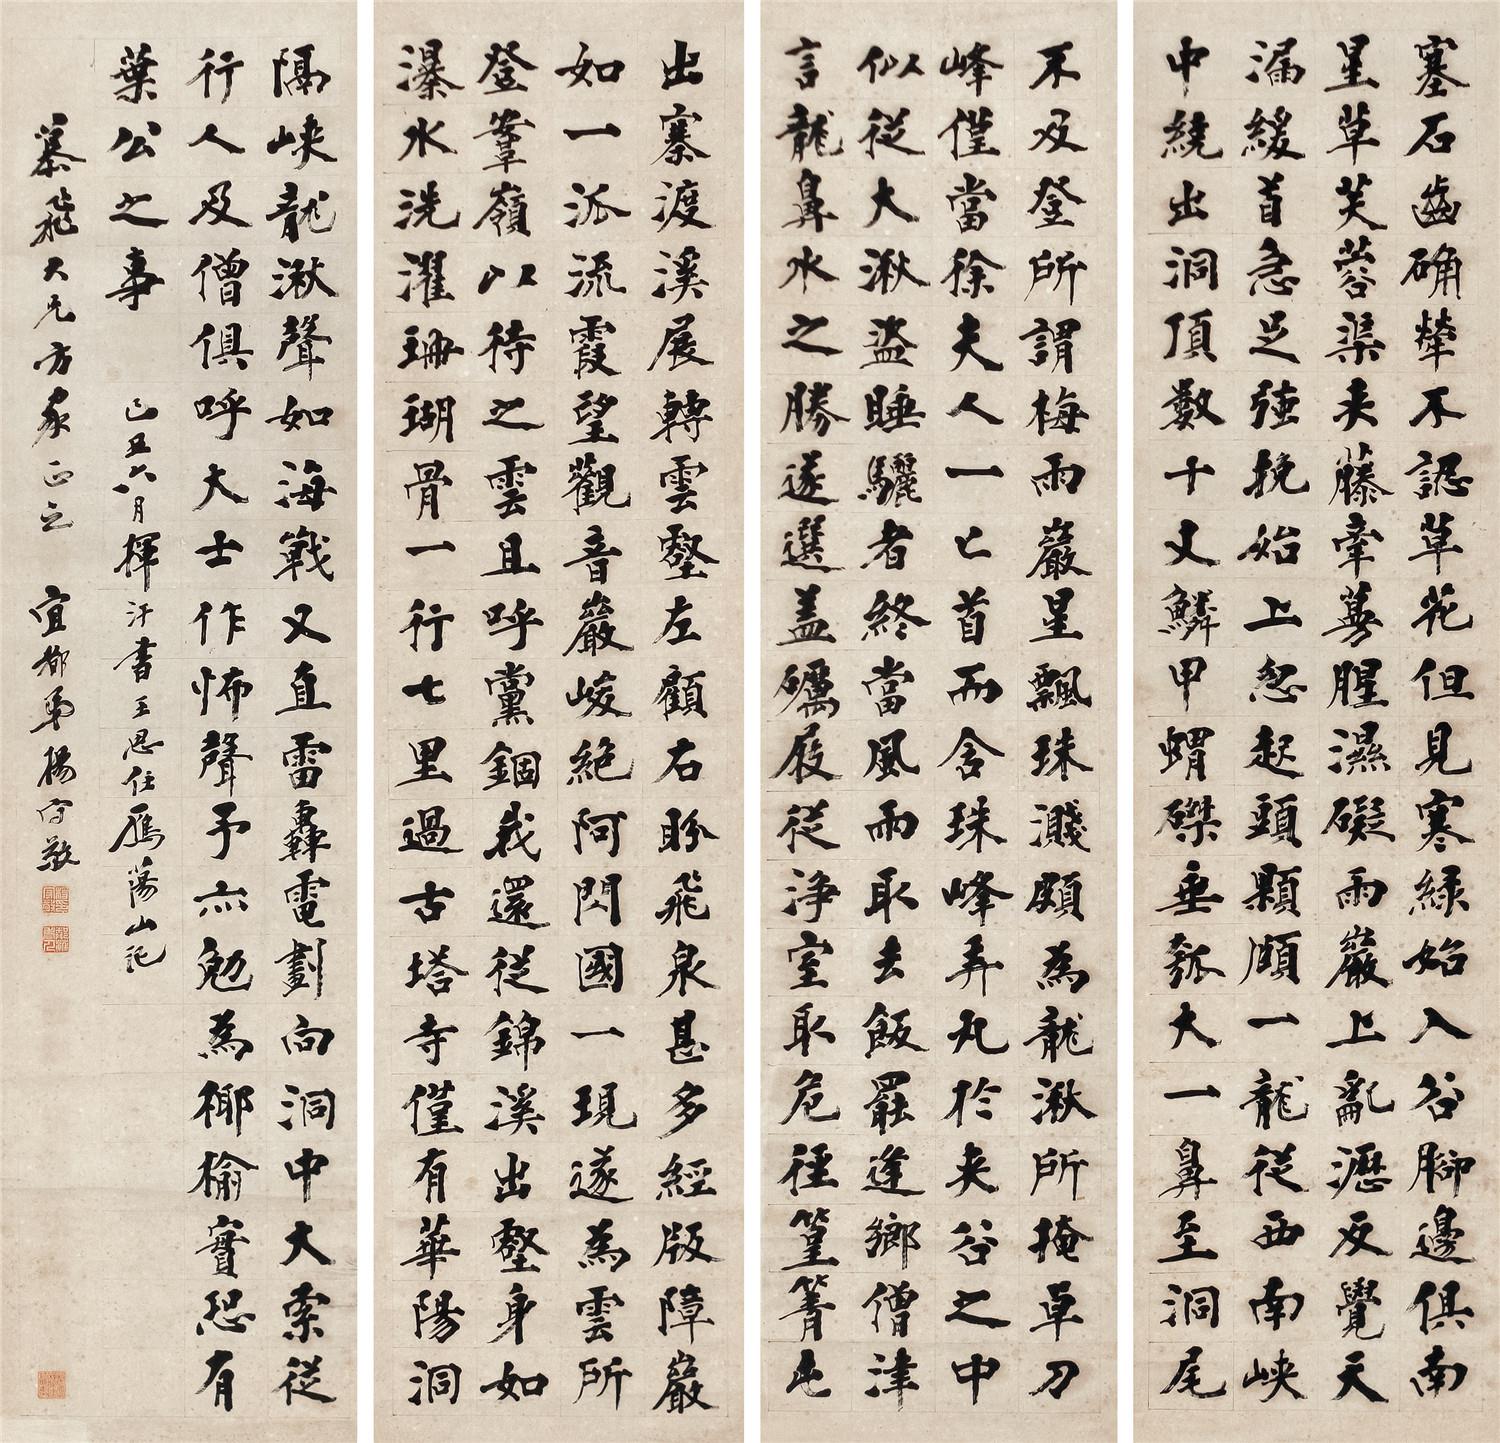 塞石齒确犖不認草花但見寒綠始入谷腳邊俱南
星草芙蓉渠夾藤牽蔓腥濕礙雨巖上亂瀝反覺天
漏緩首急足強挽始上忽起頭顆頎一龍從西南峽
中繞出洞頂數十丈鱗甲蝟磔垂瓠大一鼻至洞尾
不及登所謂梅雨巖星飄珠濺頗為龍湫所掩卓刀
峰僅當徐夫人一匕首而含珠峰弄丸於夾谷之中
似從大湫盜睡驪者終當風雨取去飯罷逢鄉僧津
言龍鼻水之勝遂選蓋礪屐從淨室取危徑篁箐乇
出寨渡溪展轉雲壑左顧右盼飛泉甚多經版障巖
如一派流霞望觀音巖峻絕阿閃國一現遂為雲所
登輋嶺以待之雲且呼黨錮我還從錦溪出壑身如
瀑水洗濯珊瑚骨一行七里過古塔寺僅有華陽洞
隔峽龍湫聲如海戰又直雷轟電劃向洞中大索從
行人及僧俱呼大士作怖聲予亦勉為椰榆實恐有
葉公之事 己丑六月揮汗書王思任雁蕩山記
慕飛大兄方家正之 宜都弟楊守敬